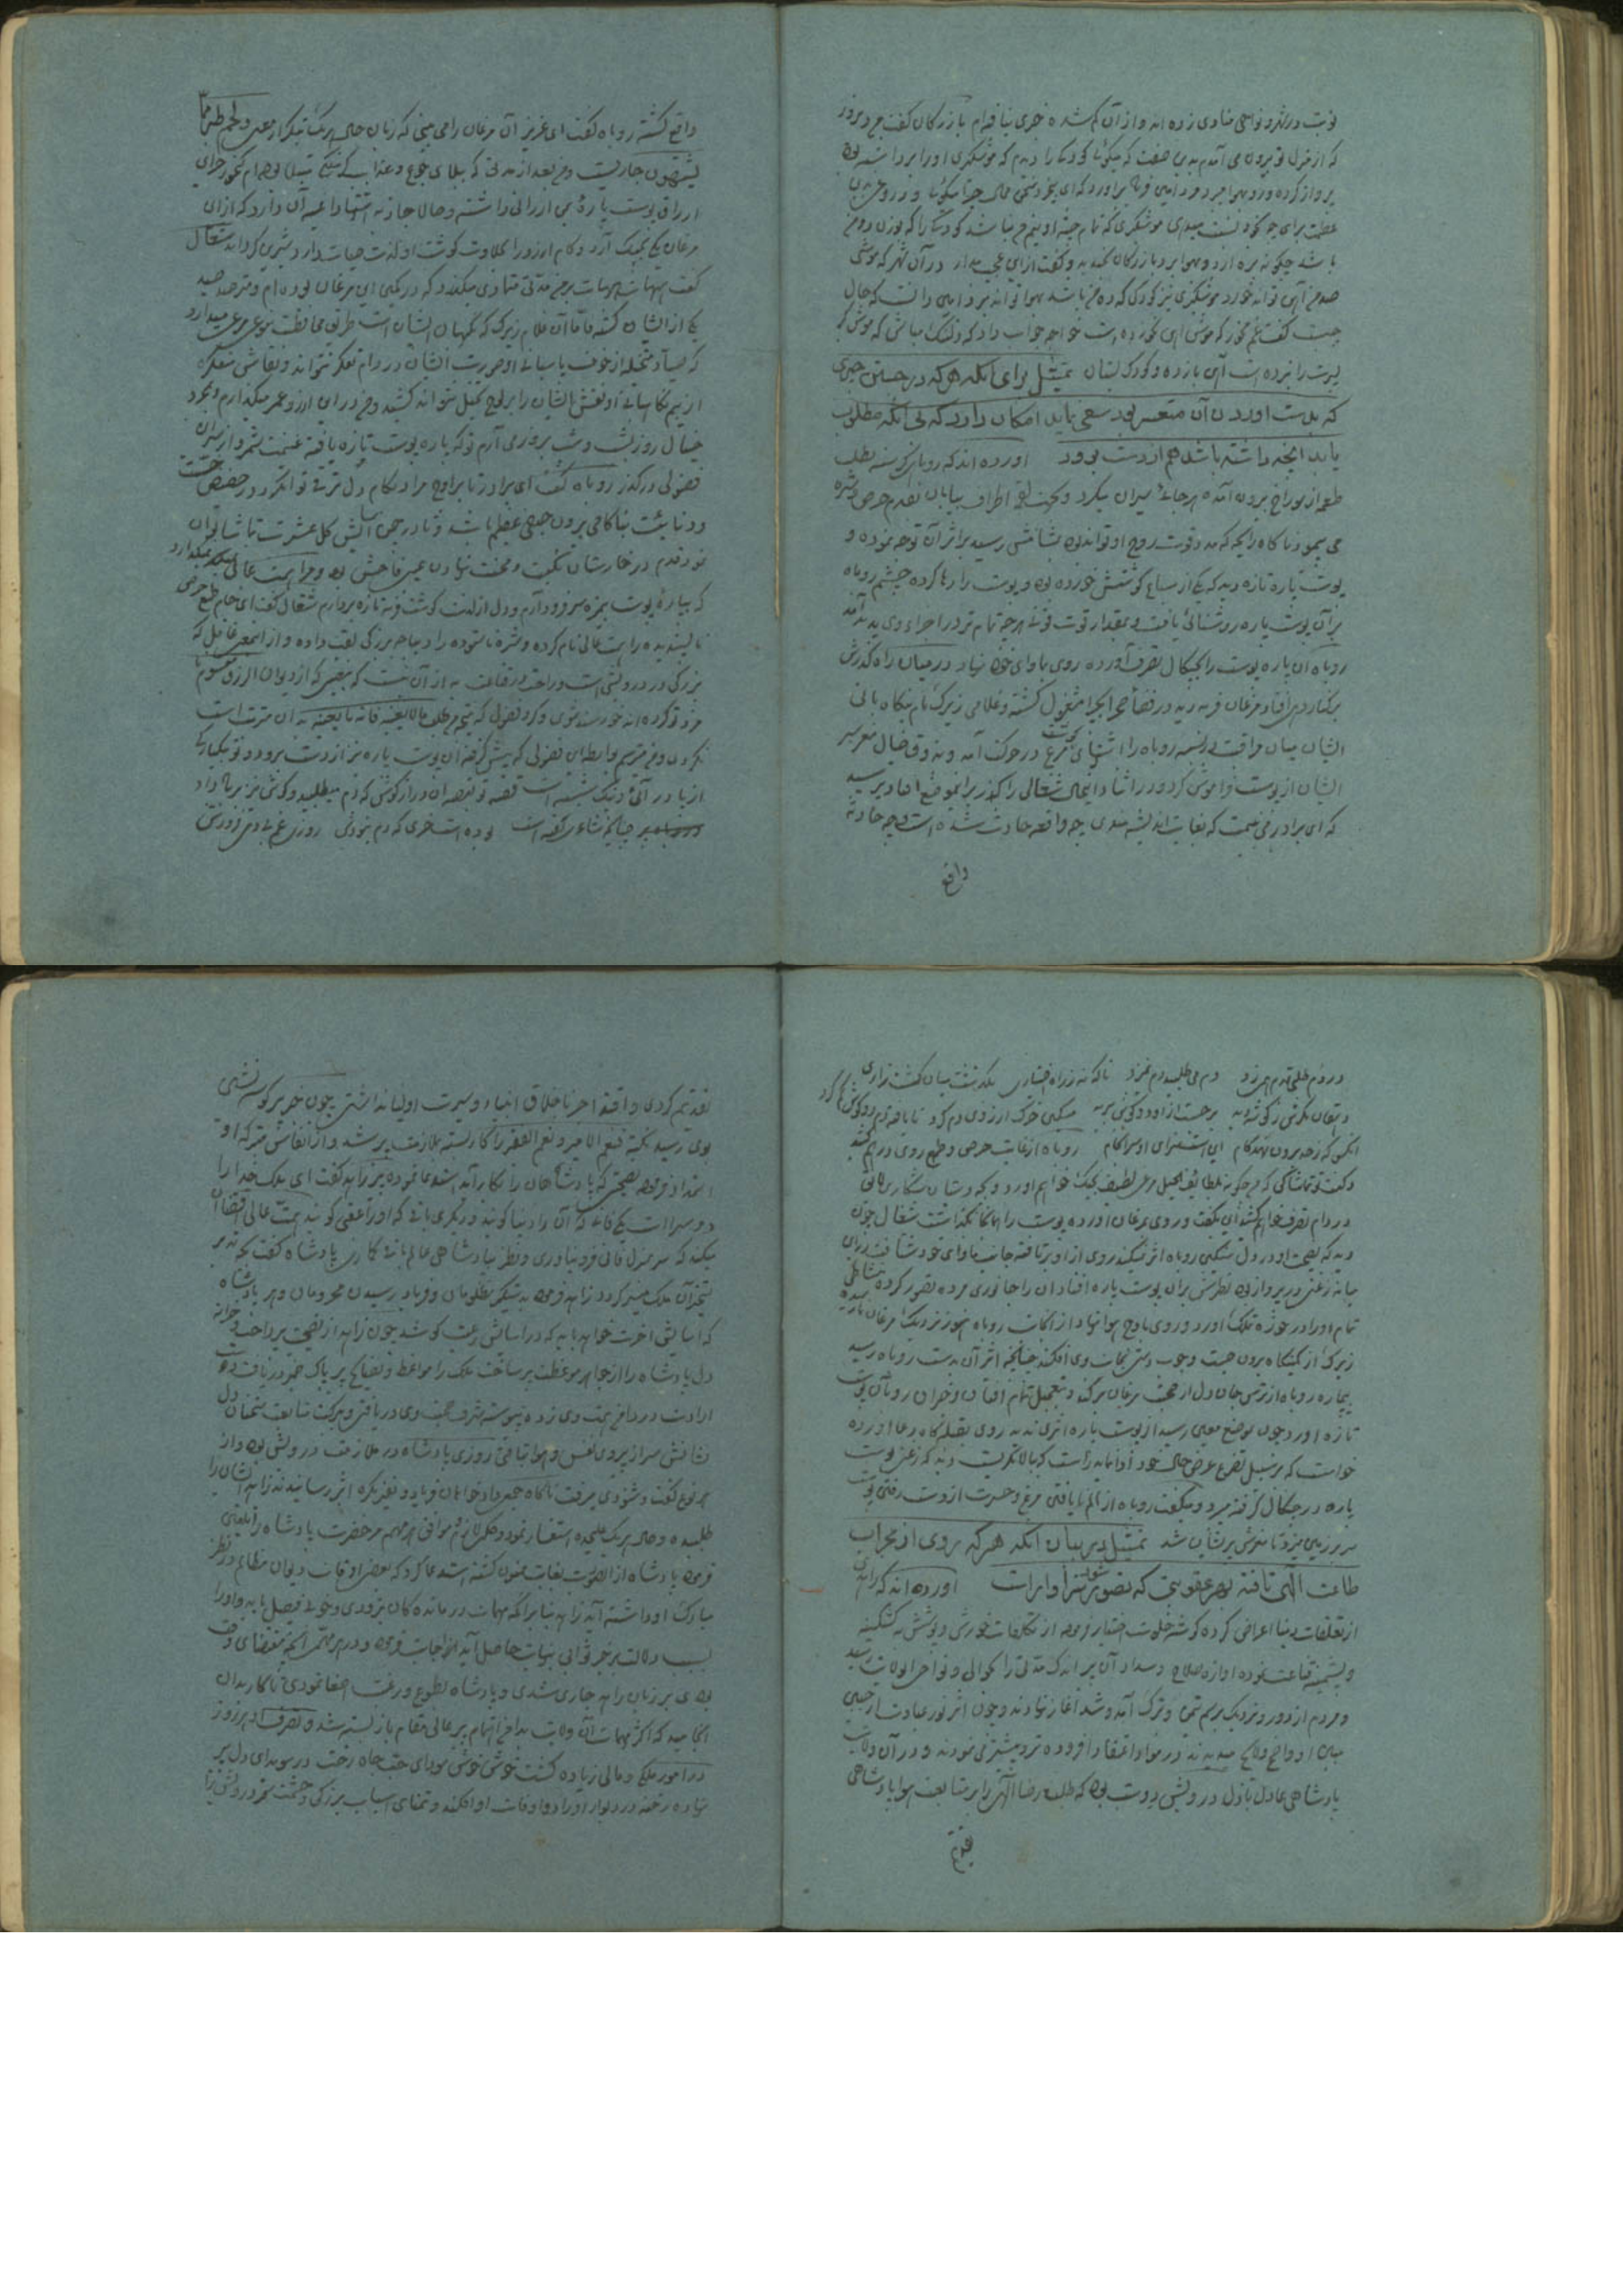 نوبت در شهر و نواحی منادی زده اند و از آن گم شده خبری نیافته ام بازرگان گفت من دیروز
که از منزل تو بیرون می آمدم بدین صفت که میگوئی کودکی را دیدم که موشگیری او را برداشته بود
پرواز کرده و در هوا میبرد مرد امین فریاد برآورد که ای بیخرد سخن محال چرا میگوئی و دروغ بدین
عظمت برای چه بر خود نسبت میدهی موشگیری که تمام جثه او نیم من نباشد کودکی را که بوزن ده من
باشد چگونه بردارد و بهوا برد بازرگان بخندید و گفت ازین عجب مدار در آن شهر که موشی
صد من آهن تواند خورد موشگیری نیز کودکی که ده من باشد بهوا تواند برد امین دانست که حال
چیست گفت غم مخور که موش آهن نخورده است خواجه جواب داد که دلتنگ مباش که موشگیر
پسرت را نبرده است آهن بازده و کودک بستان تمثیل برای آنکه هر که در جستن چیزی
که بدست آوردن آن متعسر بود سعی نماید امکان دارد که بی آنکه مطلوب
یابد آنچه داشته باشد هم از دست برود آورده اند که روباهی گرسنه بطلب
طعمه از سوراخ بیرون آمده هر جانب میران میکرد و بجهت لقمه اطراف بیابان بقدم حرص و شره
می پیمود ناگاه رایحه که مدد قوت روح او تواند بود بمشامش رسید بر اثر آن توجه نموده و
پوست پاره تازه دید که یکی از سباع گوشتش خورده بود و پوست را رها کرده چشم روباه
بر آن پوست پاره روشنائی یافت و بمقدار قوت قوتی هرچه تمام تر در اجزاء وی پدید آمد
روباه آن پاره پوست را بچنگال تصرف آورده روی بماوای خود نهاد در میان راه گذرش
برکنار دهی افتاد مرغان فربه دید در فضای صحرا بچرا مشغول گشته و غلامی زیرک نام بنگاه بانی
ایشان میان مراقبت دربسته روباه را اشتهای گوشت مرغ در حرکت آمد و بذوق خیال مغز سر
ایشان از پوست فراموش کرد و در اثناء این حال شغالی را گذر بر آن موضع افتاد پرسید
که ای برادر می بینمت که بغایت اندیشه مندی چه واقعه حادث شده است و چه حادثه
واقع
واقع گشته روباه گفت ای عزیز آن مرغان را می بینی که زبان حال هر یک بتکرار معنی و لحم طیر مما
یشتهون جاریست و من بعد از مدتی که ببلای جوع و عذاب گرسنگی مبتلا بوده ام گنجور خزاین
ارزاق پوست پاره بمن ارزانی داشته و حالا جاذبه اشتها داعیه آن دارد که ازین
مرغان یکی بچنگ آرد و کام آرزو را بحلاوت گوشت او که لذت حیات دارد شیرین گرداند شغال
گفت هیهات هیهات من مدتی متمادی میگذرد که در کمین این مرغان بوده ام و مترصد صید
یکی از ایشان گشته اما آن غلام زیرک که نگهبان ایشان است طریق محافظت بنوعی مرعی میدارد
که صیاد متخیله از خوف پاسبانی او صورت ایشان در دام تفکر نتواند و نقاش متفکره
از بیم نگاهبانی او نقش ایشان را بر لوح تخیل نتواند کشید و من درین آرزو عمر میگذارم و بمجرد
خیال روز بشب و شب بروز می آرم تو که پاره پوست تازه یافته غنیمت شمر و از سر این
فضولی درگذر روباه گفت ای برادر تا بر اوج مراد بکام دل ترقی توان کرد در حضیض خست
و دنائت بناکامی بردن حیفی عظیم باشد و تا در چمن آسایش گل عشرت تماشا توان
نمود قدم در خارستان نکبت و محنت نهادن عین فاحش بود و مرا همت عالی نمیگذارد
که بپاره پوست بیمزه سر فرود آرم و دل از لذت گوشت فربه تازه بردارم شغال گفت ای خام طمع حرص
ناپسندیده را همت عالی نام کرده و شره ناستوده را دیباجه بزرگی لقب داده و از این معنی غافلی که
بزرگی در درویشی است و راحت در قناعت به از آن نیست که بنصیبی که از دیوان الرزق مقسوم نا
مزد تو کرده اند خورسند شوی و گرد فضول که نتیجه من طلب مالا یعنیه فاته ما یعنیه بدان مترتب است
نگردی و من میترسم بواسطه این فضولی که پیش گرفته آن پوست پاره نیز از دست برود و تو بیکبارگی
از پا در آئی و نیک شبیه است قصه تو بقصه آن دراز گوش که دم میطلبید و گوش نیز بباد داد
چنانچه شاعر گفته است بوده است خری که دم نبودش روزی غم بی دمی فزودش
در دم طلبی قدم همی زد دم می طلبید و دم نمیزد ناگه نه ز راه اختیاری بگذشت میان کشتزاری
دهقان مگرش ز گوشه دید برجست از او دو گوش ببرید مسکین خرک آرزوی دم کرد نا یافته دم دو گوش گم کرد
آنکس که ز حد برون نهد گام این است سزای او سرانجام روباه از غایت حرص و طمع روی در هم کشید
و گفت تو تماشا کن که من چگونه بلطایف الحیل مرغی لطیف بچنگ خواهم آورد و بچه دستان شکاری
در دام تصرف خواهم کشید این بگفت و روی بمرغان آورده پوست را همانجا بگذاشت شغال چون
دید که نصیحت او در دل سنگین روباه اثر نمیکند روی از او برتافته جانب ماوای خود شتافت درین
میانه زغنی در پرواز بود نظرش بر آن پوست پاره افتاد آن را جانوری مرده تصور کرده بنشاطی
تمام او را در حوزه تملک آورد و روی باوج هوا نهاد از آنجانب روباه هنوز نزدیک مرغان نارسیده
زیرک از کمینگاه بیرون جست و چوب دستی بجانب وی افکند چنانچه اثر آن بدست روباه رسید
بیچاره روباه از ترس جان دل از محبت مرغان برکند و بتعجیل تمام افتان و خیزان رو بآن پوست
تازه آورد چون بموضع معین رسید از پوست پاره اثری ندید روی بقبله گاه دعا آورده
خواست که بر سبیل تضرع عرض حال خود ادا نماید راست که ببالا نگریست دید که زغن پوست
پاره در چنگال گرفته میبرد و میگفت روباه از الم نایافتن مرغ و حسرت از دست رفتن پوست
سر بر زمین میزد تا مغزش پریشان شد تمثیل در بیان آنکه هر که روی از محراب
طاعت الهی تافته بهر عقوبتی که تصور شود سزاوار است آورده اند که زاهدی
از تعلقات دنیا اعراض کرده گوشه خلوت اختیار فرموده از تکلفات خورش و پوشش به کشکینه
و پشمینه قناعت نموده آوازه صلاح و سداد آن پیر اندک مدتی را بحوالی و نواحی آن ولایت رسید
و مردم از دور و نزدیک برسم تیمن و تبرک آمد و شد آغاز نهادند و چون اثر نور عبادت از جبین
مبین او واضح و لایح میدیدند در مواد اعتقاد افزوده تردد بیشتر می نمودند و در آن ولایت
پادشاهی عادل باذل درویش دوست بود که طلب رضا الهی را بر متابعت هوا پادشاهی
تقدیم
تقدیم کردی و اقتدا جز باخلاق انبیاء و سیرت اولیا نداشتی چون خبر پیر گوشه نشین
بوی رسید بحکم نعم الامیر و نعم الفقیر را کار بسته بملازمت پیر شد و از انفاس متبرکه او
استمداد فرمود بنصیحتی که پادشاهان را بکار آید استدعا نمود پیر زاهد گفت ای ملک خدا را
دو سرا است یکی فانی که آن را دنیا گویند و دیگری باقی که او را عقبی گویند همت عالی اقتضا آن
میکند که سر بمنزل فانی فرو نیاوری و نظر بپادشاهی عالم باقی گماری پادشاه گفت بچه تدبیر
تسخیر آن ملک میسر گردد زاهد فرمود بدستگیری مظلومان و فریاد رسیدن محرومان و هر پادشاه
که آسایش آخرت خواهد باید که در آسایش رعیت کوشد چون زاهد از نصیحت پرداخت و خزانه
دل پادشاه را از جواهر موعظت پر ساخت ملک را مواعظ و نصایح پیر پاک ضمیر دریافت و دست
ارادت در دامن همت وی زده پیوسته شرف صحبت وی دریافتی و ببرکت متابعت سخنان دل
نشانش سر از پیروی نفس و هوا تافتی روزی پادشاه در ملازمت درویش بود و از
هر نوع گفت و شنودی میرفت ناگاه جمعی دادخواهان فریاد و نفیر بکره اثیر رسانیدند زاهد ایشان را
طلبیده و حال هر یک علیحده استفسار نمود و حکم لازم موافق هر مهم مر حضرت پادشاه را تلقین
فرمود پادشاه از این صورت بغایت ممنون گشته استدعا کرد که بعضی اوقات دیوان مظالم در نظر
مبارک او داشته آید زاهد بنا بر آنکه مهمات درماندگان بزودی وجهی فیصل یابد و او را
بسبب دلالت بر خیر ثوابی بنهایت حاصل آید اجابت فرموده در هر مهم آنچه مقتضای وقت
بودی بر زبان زاهد جاری شدی و پادشاه بطوع و رغبت اصغا نمودی تا کار بدان
انجامید که اکثر مهمات آن ولایت بدامن اهتمام پیر عالی مقام باز بسته شد و تصرف او هر روز
در امور ملکی و مالی زیاده گشت خوش خوش سودای حب جاه رخت در سویدای دل پیر
نهاده رخنه در دیوار اوراد و اوقات او افکند و تمنای اسباب بزرگی و حشمت سر درویش را